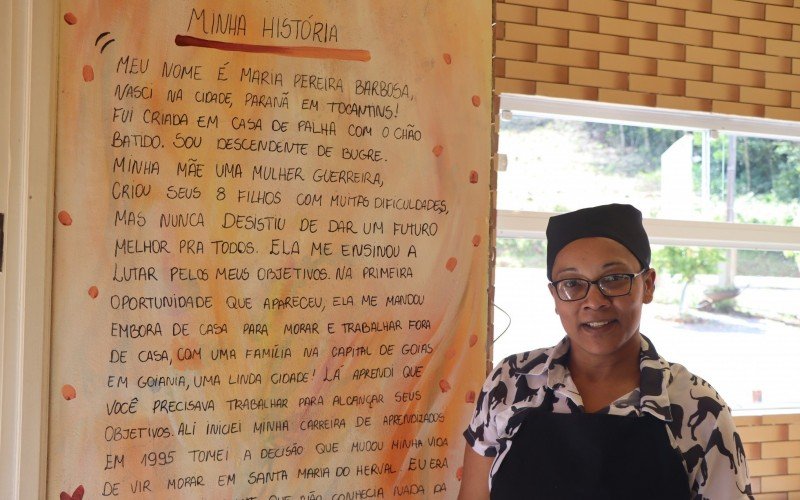 MINHA HISTÓRIA
MEU NOME É MARIA PEREIRA BARBOSA,
NASCI NA CIDADE, PARANÃ EM TOCANTINS!
FUI CRIADA EM CASA DE PALHA COM O CHÃO
BATIDO. SOU DESCENDENTE DE BUGRE.
MINHA MÃE UMA MULHER GUERREIRA,
CRIOU SEUS 8 FILHOS COM MUITAS DIFICULDADES,
MAS NUNCA DESISTIU DE DAR UM FUTURO
MELHOR PRA TODOS. ELA ME ENSINOU A
LUTAR PELOS MEUS OBJETIVOS. NA PRIMEIRA
OPORTUNIDADE QUE APARECEU, ELA ME MANDOU
EMBORA DE CASA PARA MORAR E TRABALHAR FORA
DE CASA, COM UMA FAMÍLIA NA CAPITAL DE GOIAS
EM GOIANIA, UMA LINDA CIDADE! LÁ APRENDI QUE
VOCÊ PRECISAVA TRABALHAR PARA ALCANÇAR SEUS
OBJETIVOS. ALI INICIEI MINHA CARREIRA DE APRENDIZADOS
EM 1995 TOMEI A DECISÃO QUE MUDOU MINHA VIDA
DE VIR MORAR EM SANTA MARIA DO HERVAL. EU ERA
QUE NÃO CONHECIA NADA DA